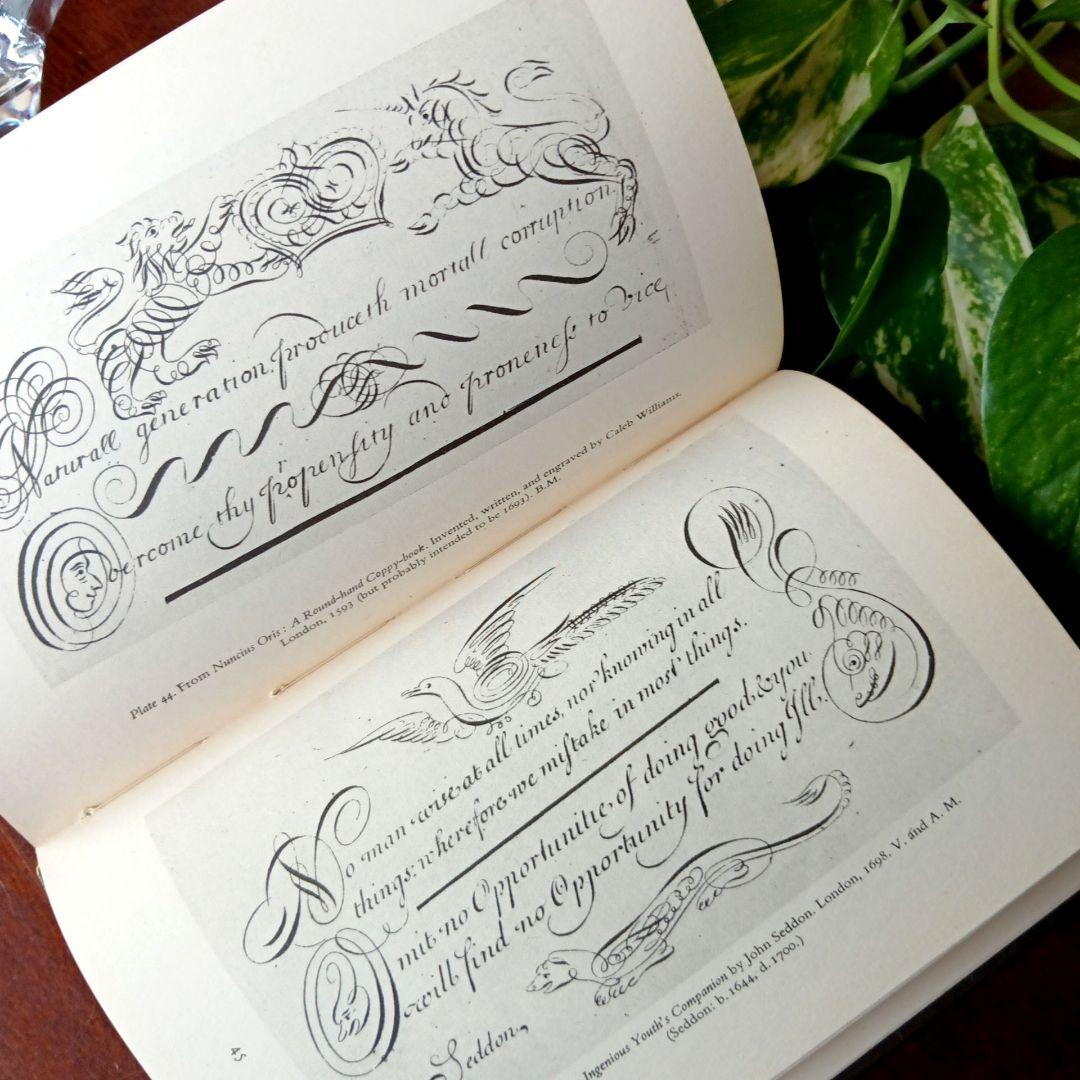 Naturall generation produceth mortall corruption.
Overcome thy propensity and proneness to vice,
Plate 44. From Nuncius Oris: A Round-hand Coppy-book. Invented, written, and engraved by Caleb Williams.
London, 1593 (but probably intended to be 1693). B.M.
No man wise at all times, nor knowing in all
things: wherefore we mistake in most things.
Omit no Opportunitie of doing good, & you
will find no Opportunity for doing Ill.
Seddon,
Ingenious Youth's Companion by John Seddon. London, 1698. V. and A. M.
(Seddon: b. 1644, d. 1700.)
45